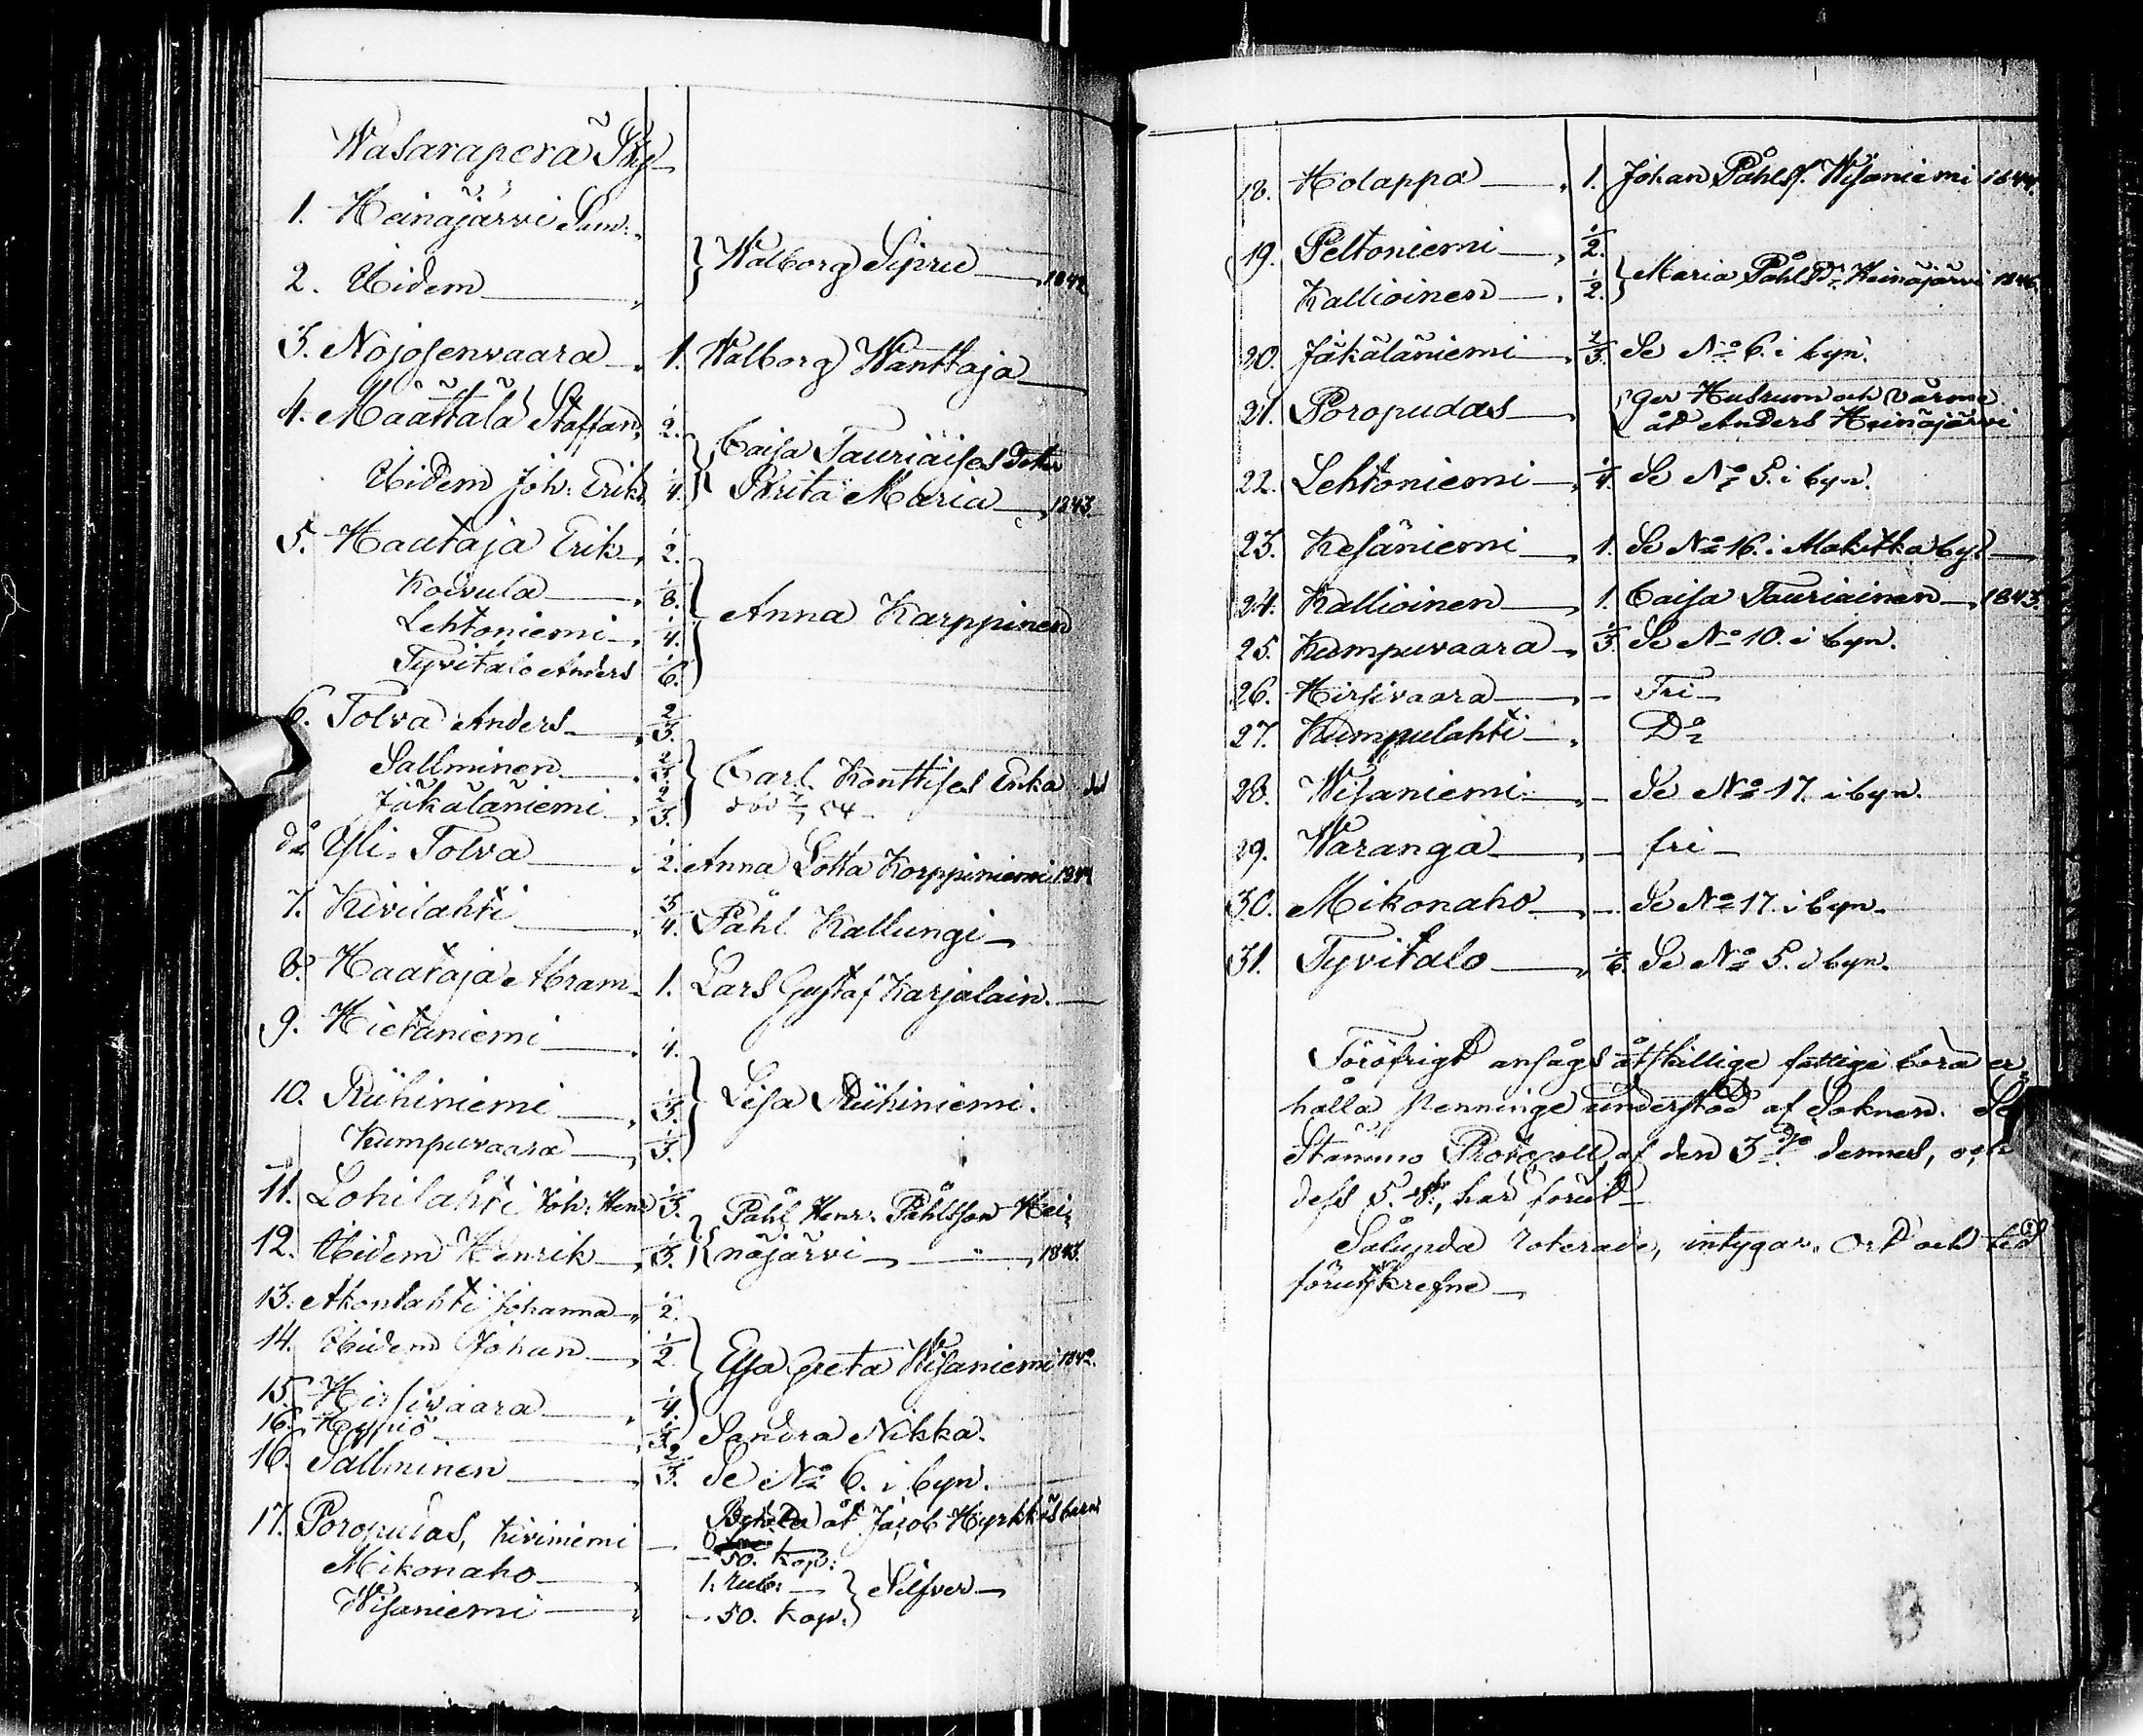 Wasaraperä By
1. Heinäjärvi Sam:
2. Ibidem } Walborg Sipru 1842
3. Nojosenvaara 1. Walborg Wanttaja
4. Määttälä Staffan 1/2. Caisa Tauriaises dotter
Ibidem Joh: Eriks 1/4. Brita Maria 1843.
5. Hautaja Erik 1/2.
Koivula 1/8.
Lehtoniemi 1/4. } Anna Karppinen
Tyvitalo Anders 1/6.
6. Tolva Anders 2/3.
Sallminen 2/3. } Carl Konttises Enka
Jäkäläniemi 2/3. död 54
d:o Yli-Tolva 1/2. Anna Lotta Korppiniemi 1844
7. Kivilahti 3/4. Påhl Kallungi
8. Haataja Abram 1. Lars Gustaf Karjalain.
9. Hietaniemi 1/4.
10. Riihiniemi 1/3. } Lisa Riihiniemi.
Kumpuvaara 1/3.
11. Lohilahti Joh: Henr 1/3. Påhl Henr: Påhlsson Hei-
12. Ibidem Henrik 1/3. näjärvi " 1843.
13. Akonlahti Johanna 1/2.
14. Ibidem Johan 1/2. } Elsa Greta Wisaniemi 1842.
15. Hirsivaara 1/4.
16. Hyppiö 1/3. Sandra Nikka.
16. Sallminen 2/3. Se No 6. i byn.
17. Poropudas, Kiviniemi åt Jacob Hyrkkäs barn
50. kop:
Mikonaho 1. rub: } Silfver
Wisaniemi 50. kop.
18. Holappa 1. Johan Påhlss. Wisaniemi 1844.
19. Peltoniemi 1/2.
Kallioinen 1/2. } Maria PåhlsDr Heinäjärvi 1846.
20. Jäkäläniemi 2/3. Se No 6. i byn.
21. Poropudas { ger Husrum och värme
åt Anders Heinäjärvi
22. Lehtoniemi 1/4. Se No 5. i byn.
23. Kesäniemi 1. Se No 16. i Alakitka by
24. Kallioinen 1. Caisa Tauriainen 1843.
25. Kumpuvaara 1/3. Se No 10. i byn.
26. Hirsivaara Fri
27. Kumpulahti Do
28. Wisaniemi Se No 17. i byn.
29. Waranga fri
30. Mikonaho Se No 17. i byn.
31. Tyvitalo 1/6. Se No 5. i byn.
Föröfrigt ansågs åtskillige fattige böra er-
hålla Penninge understöd af Soknen. Se
Stämmo Protocoll af den 3dje dennes, och
dess 5. §, här förut
Sålunda roterade, intygar. Ort och tid
förutskrefne